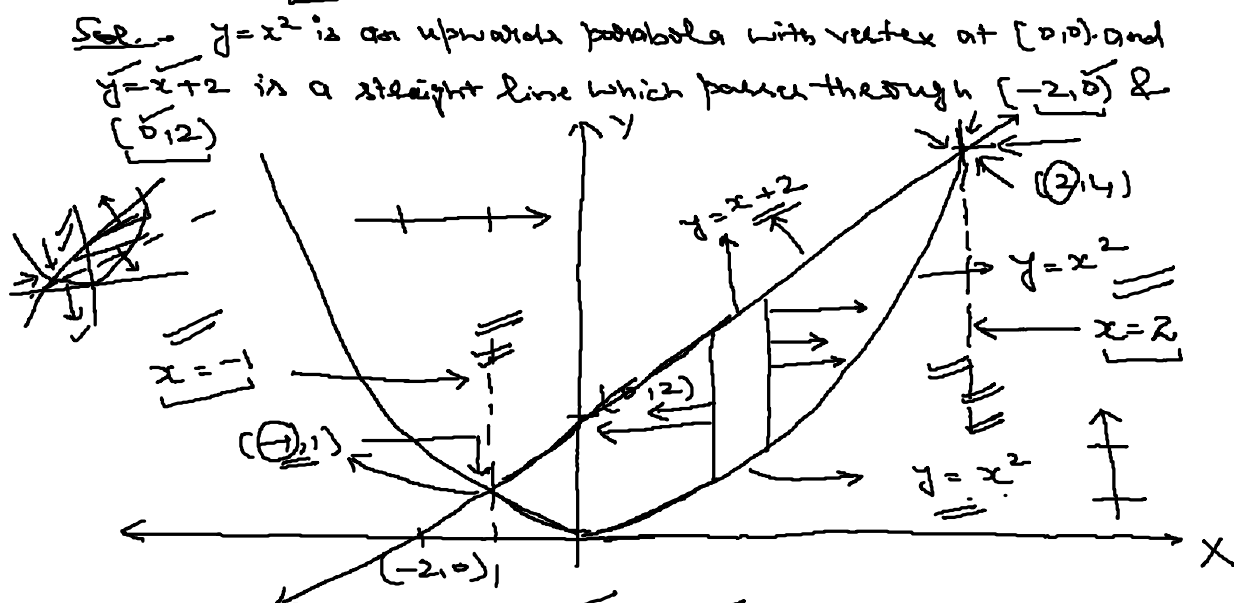 Sol. → y = x² is an upwards parabola with vertex at (0,0) and
y = x + 2 is a straight line which passes through (-2,0) &
(0,2)
Y
(2,4)
y = x + 2
y = x²
x = 2
x = -1
(0,2)
(-1,1)
y = x²
(-2,0)
X